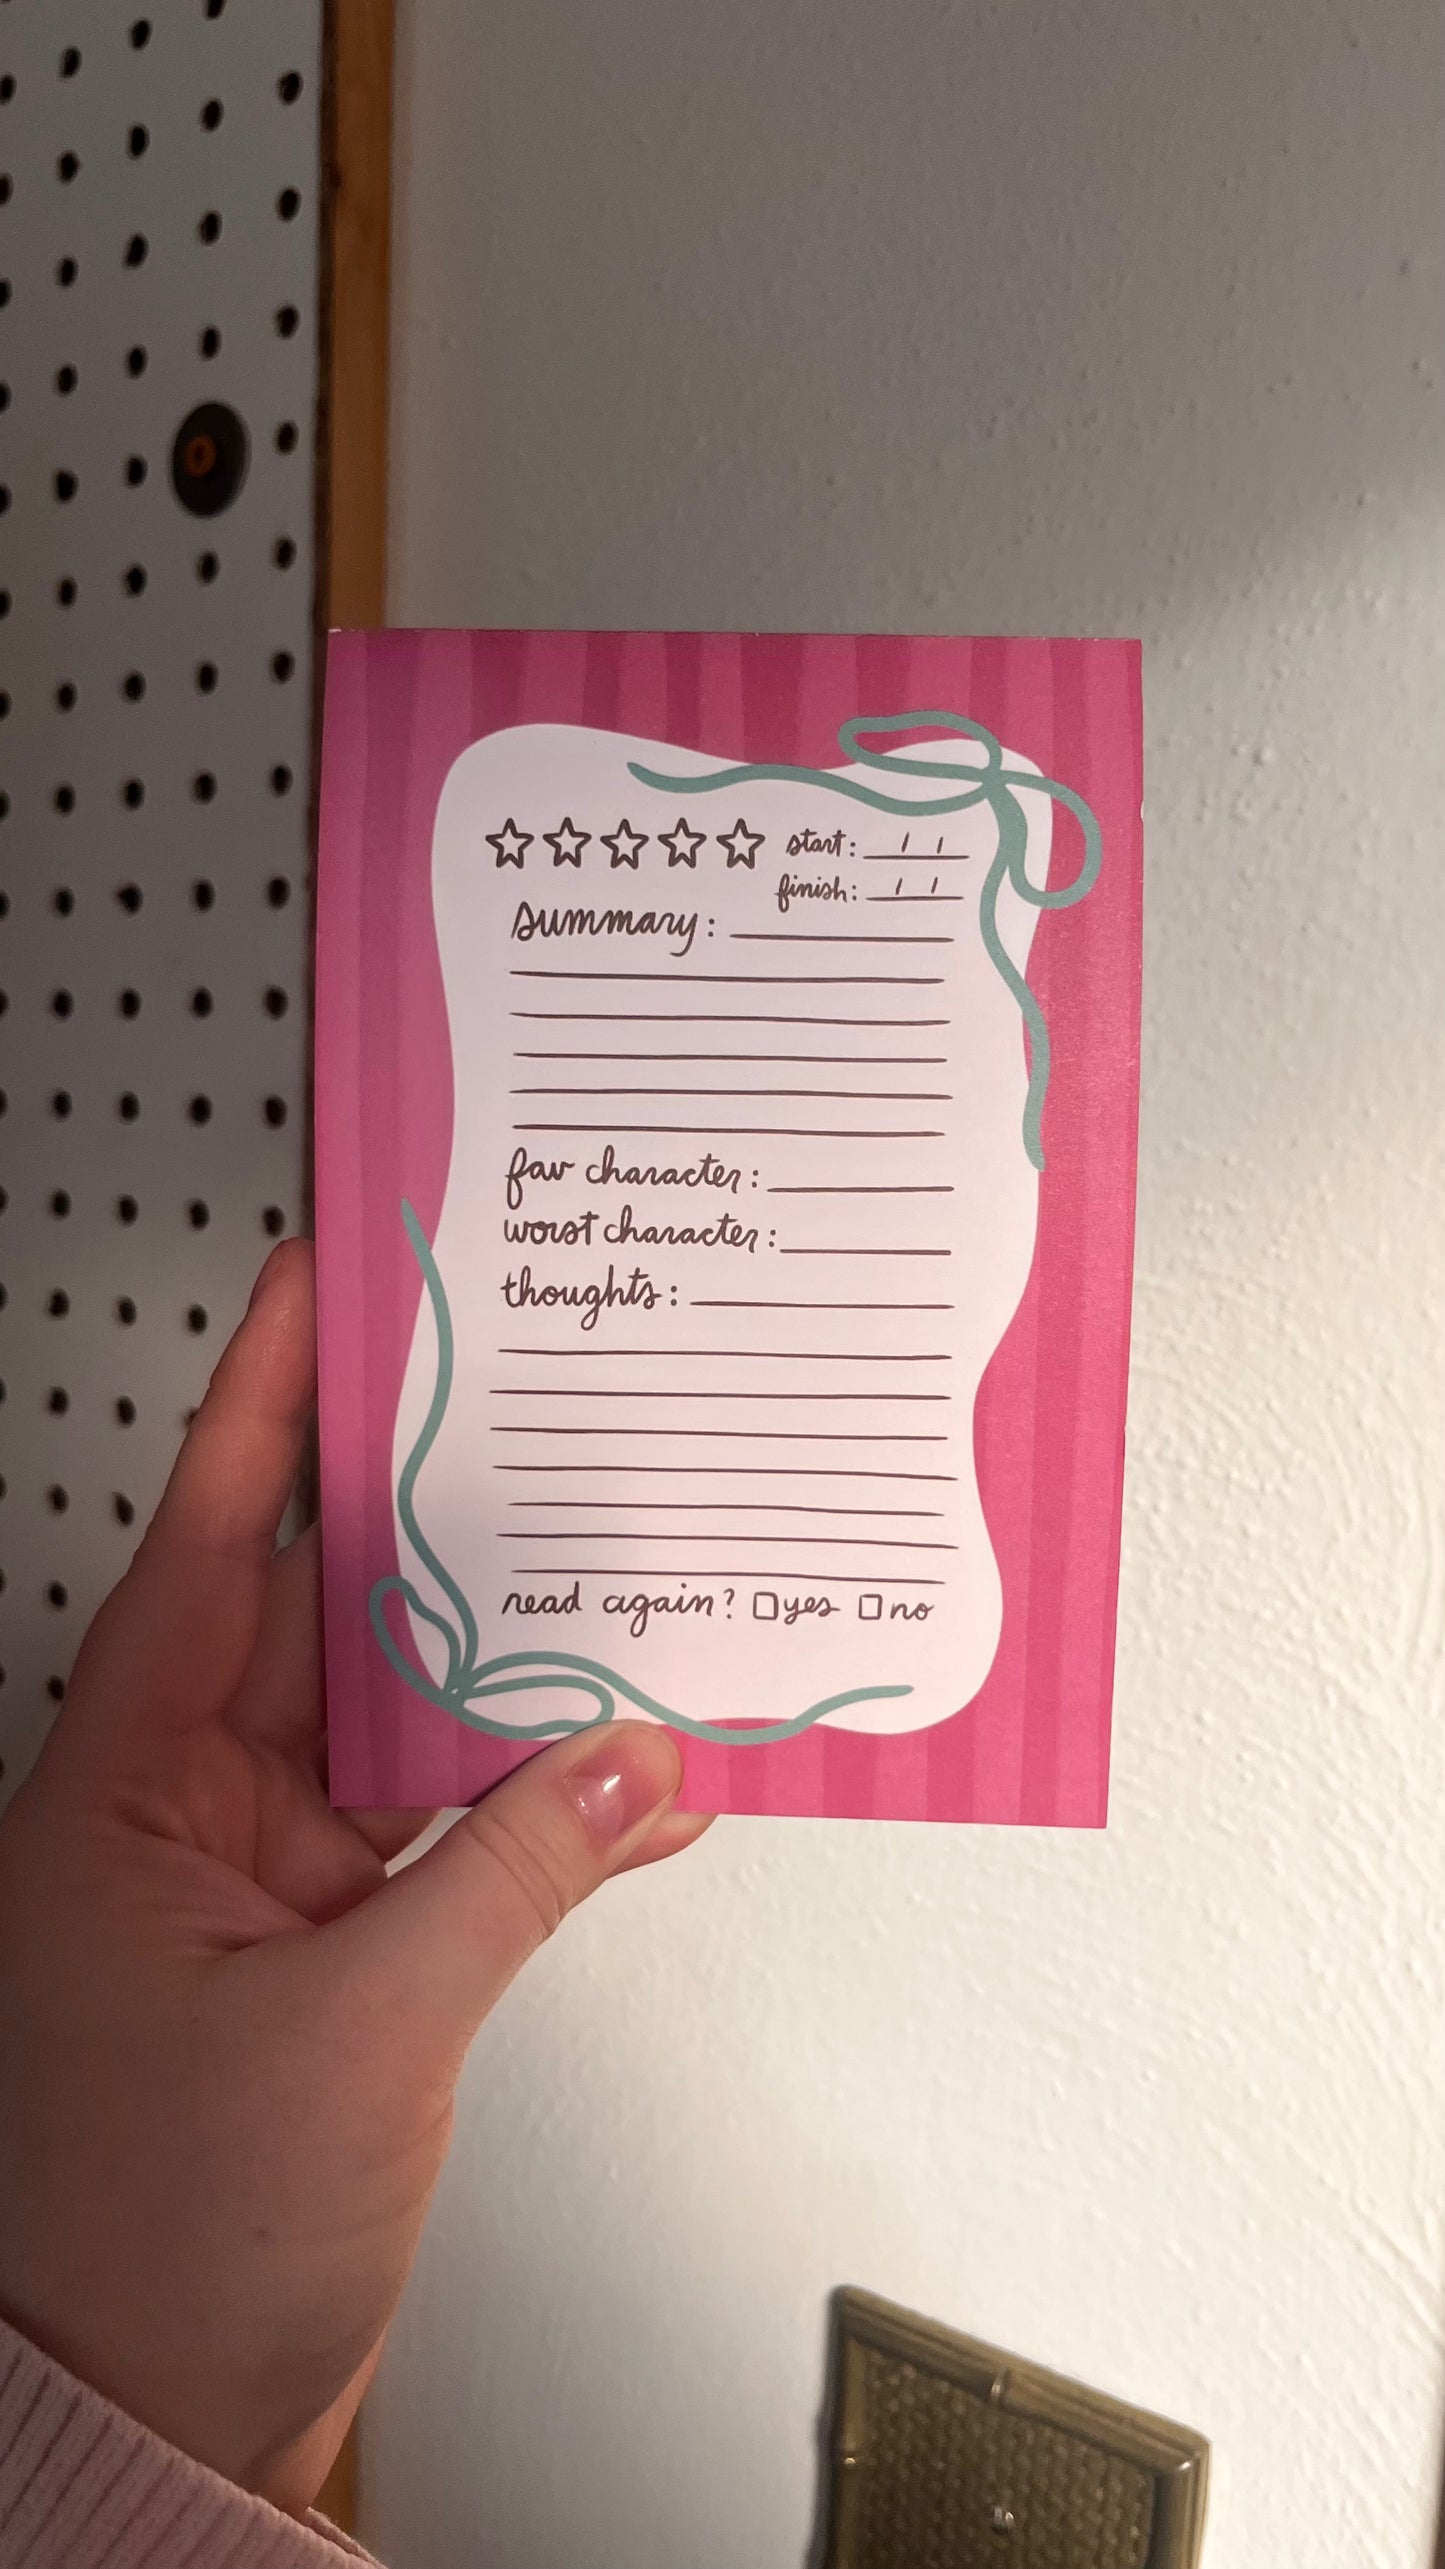 start: / /
finish: / /
summary:
fav character:
worst character:
thoughts:
read again? yes no